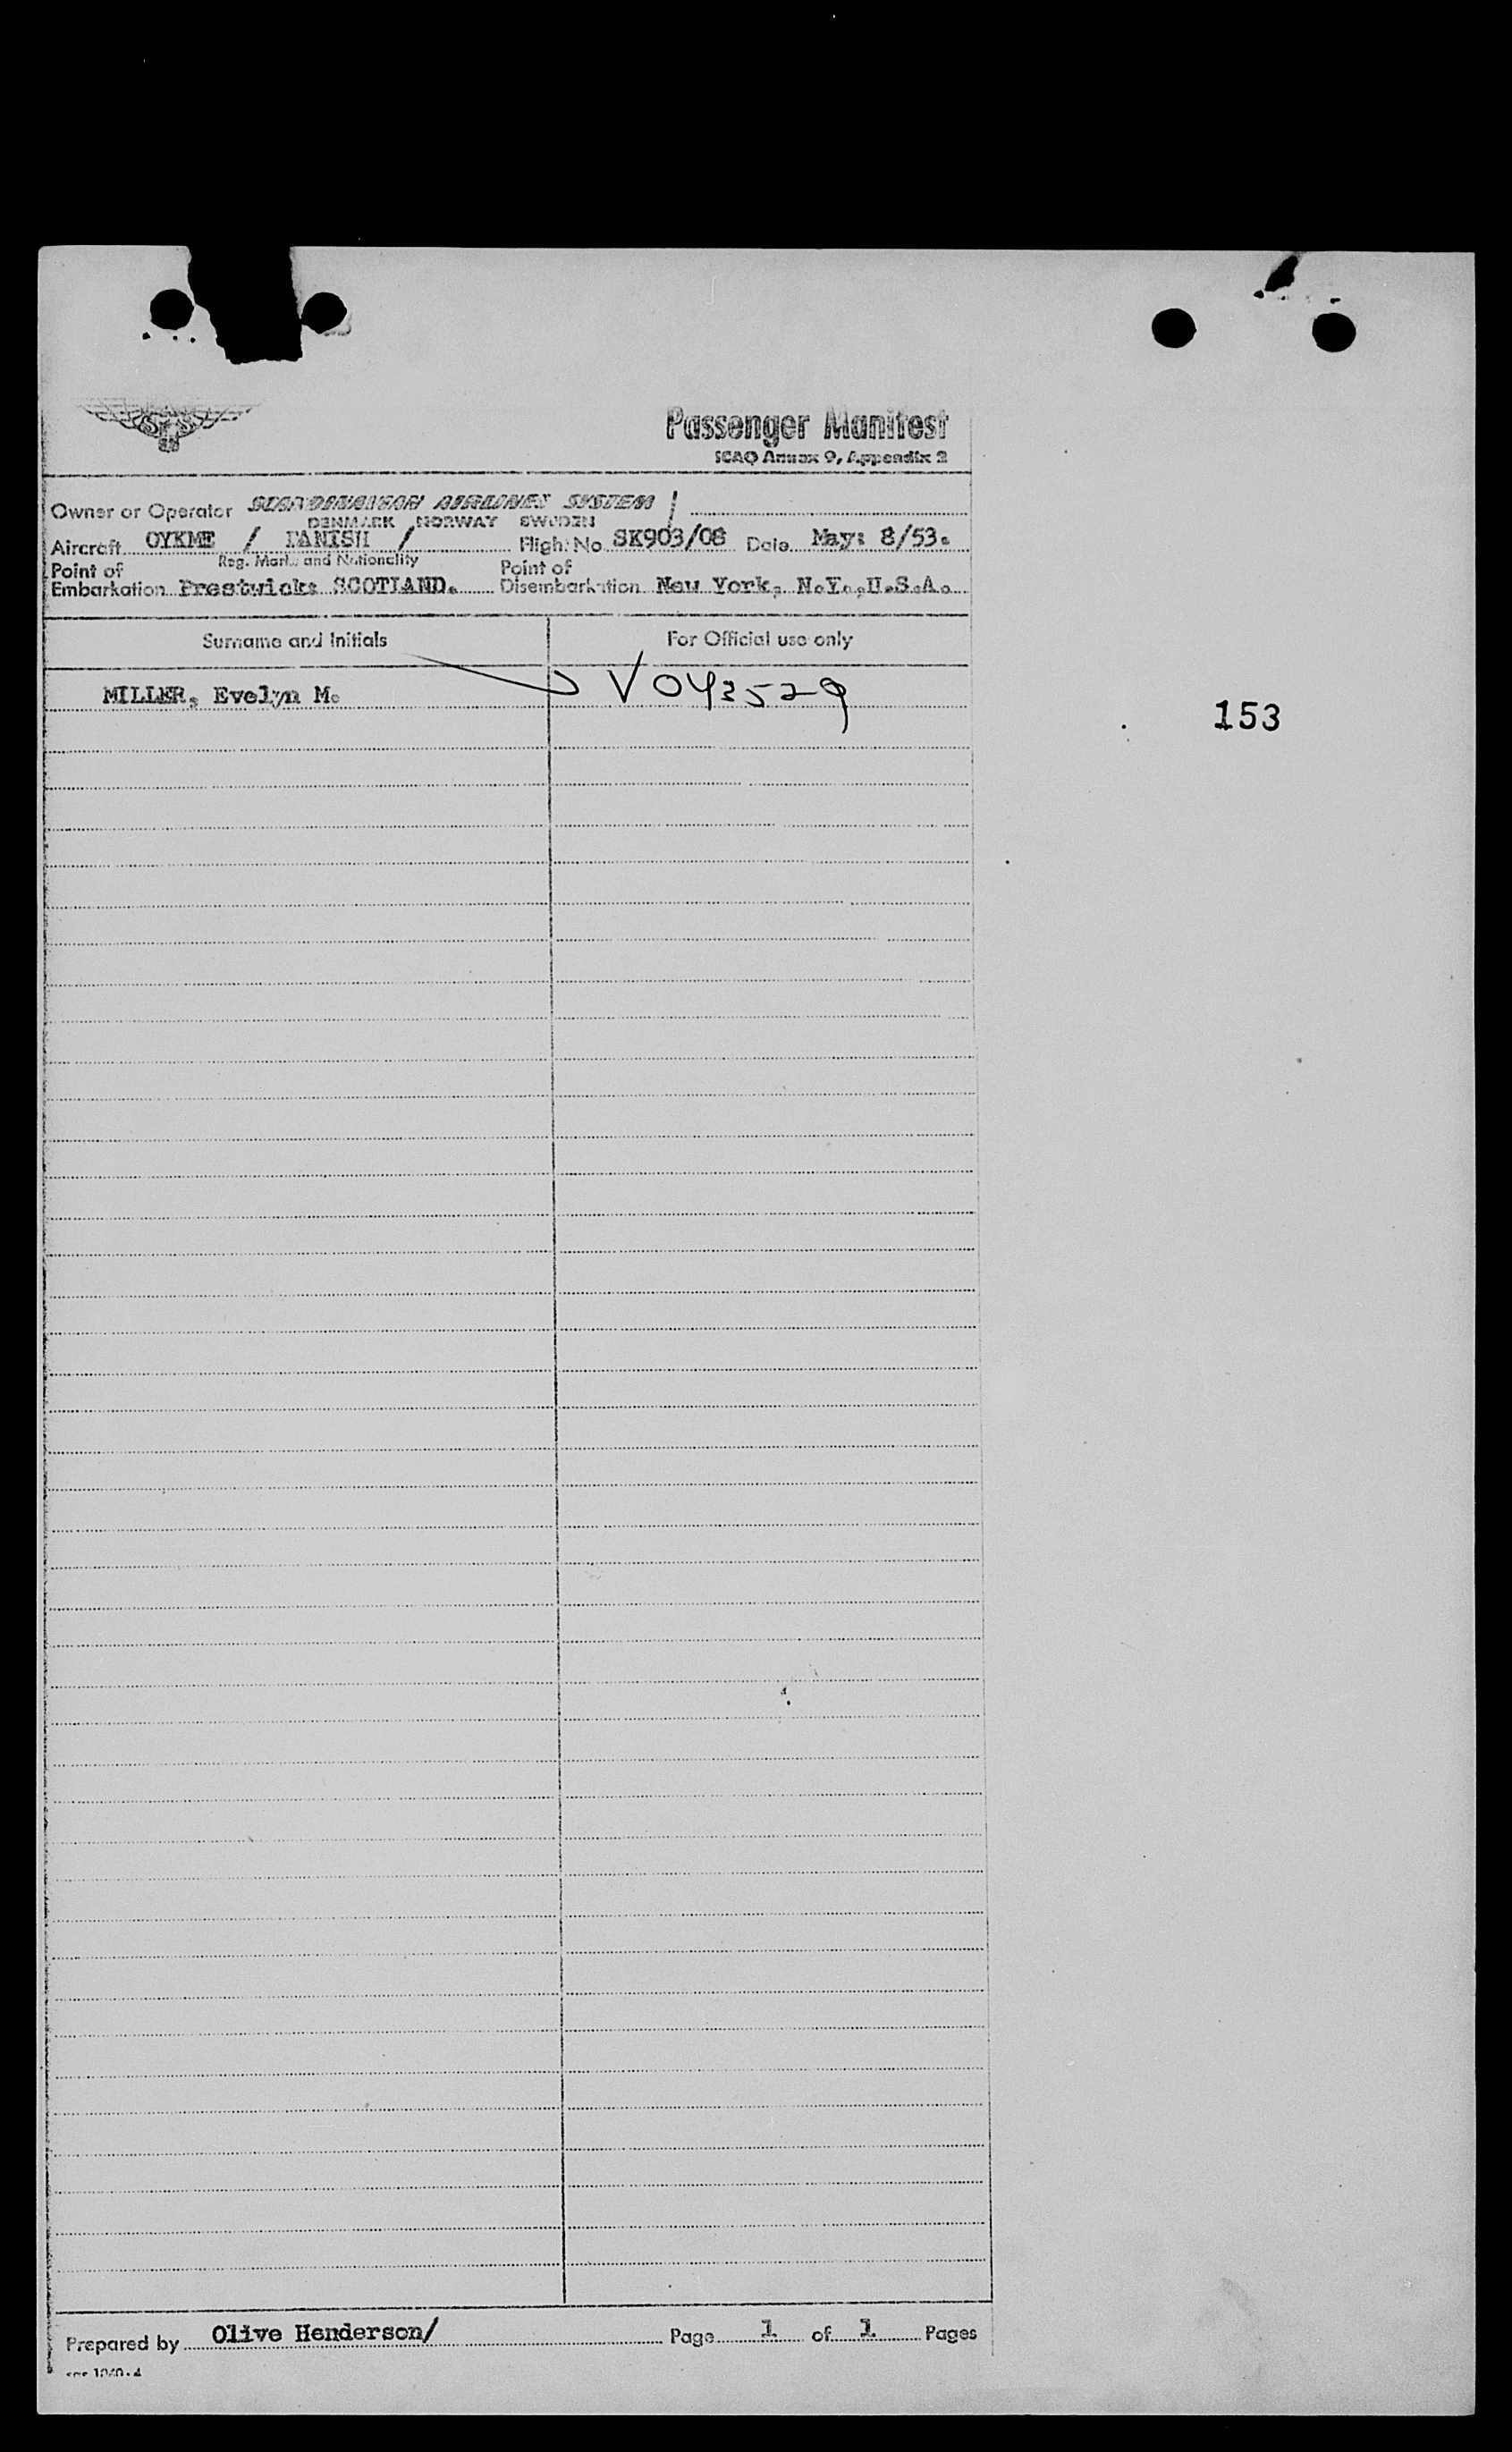 SAS
Passenger Manifest
ICAO Annex 9, Appendix 2
Owner or Operator SCANDINAVIAN AIRLINES SYSTEM /
DENMARK NORWAY SWEDEN
Aircraft OYKME / DANISH / Flight No SK903/08 Date May: 8/53.
Reg. Mark and Nationality
Point of Embarkation Prestwick: SCOTLAND. Point of Disembarkation New York, N.Y.,U.S.A.
Surname and Initials For Official use only
MILLER, Evelyn M. V 043529
153
Prepared by Olive Henderson/ Page 1 of 1 Pages